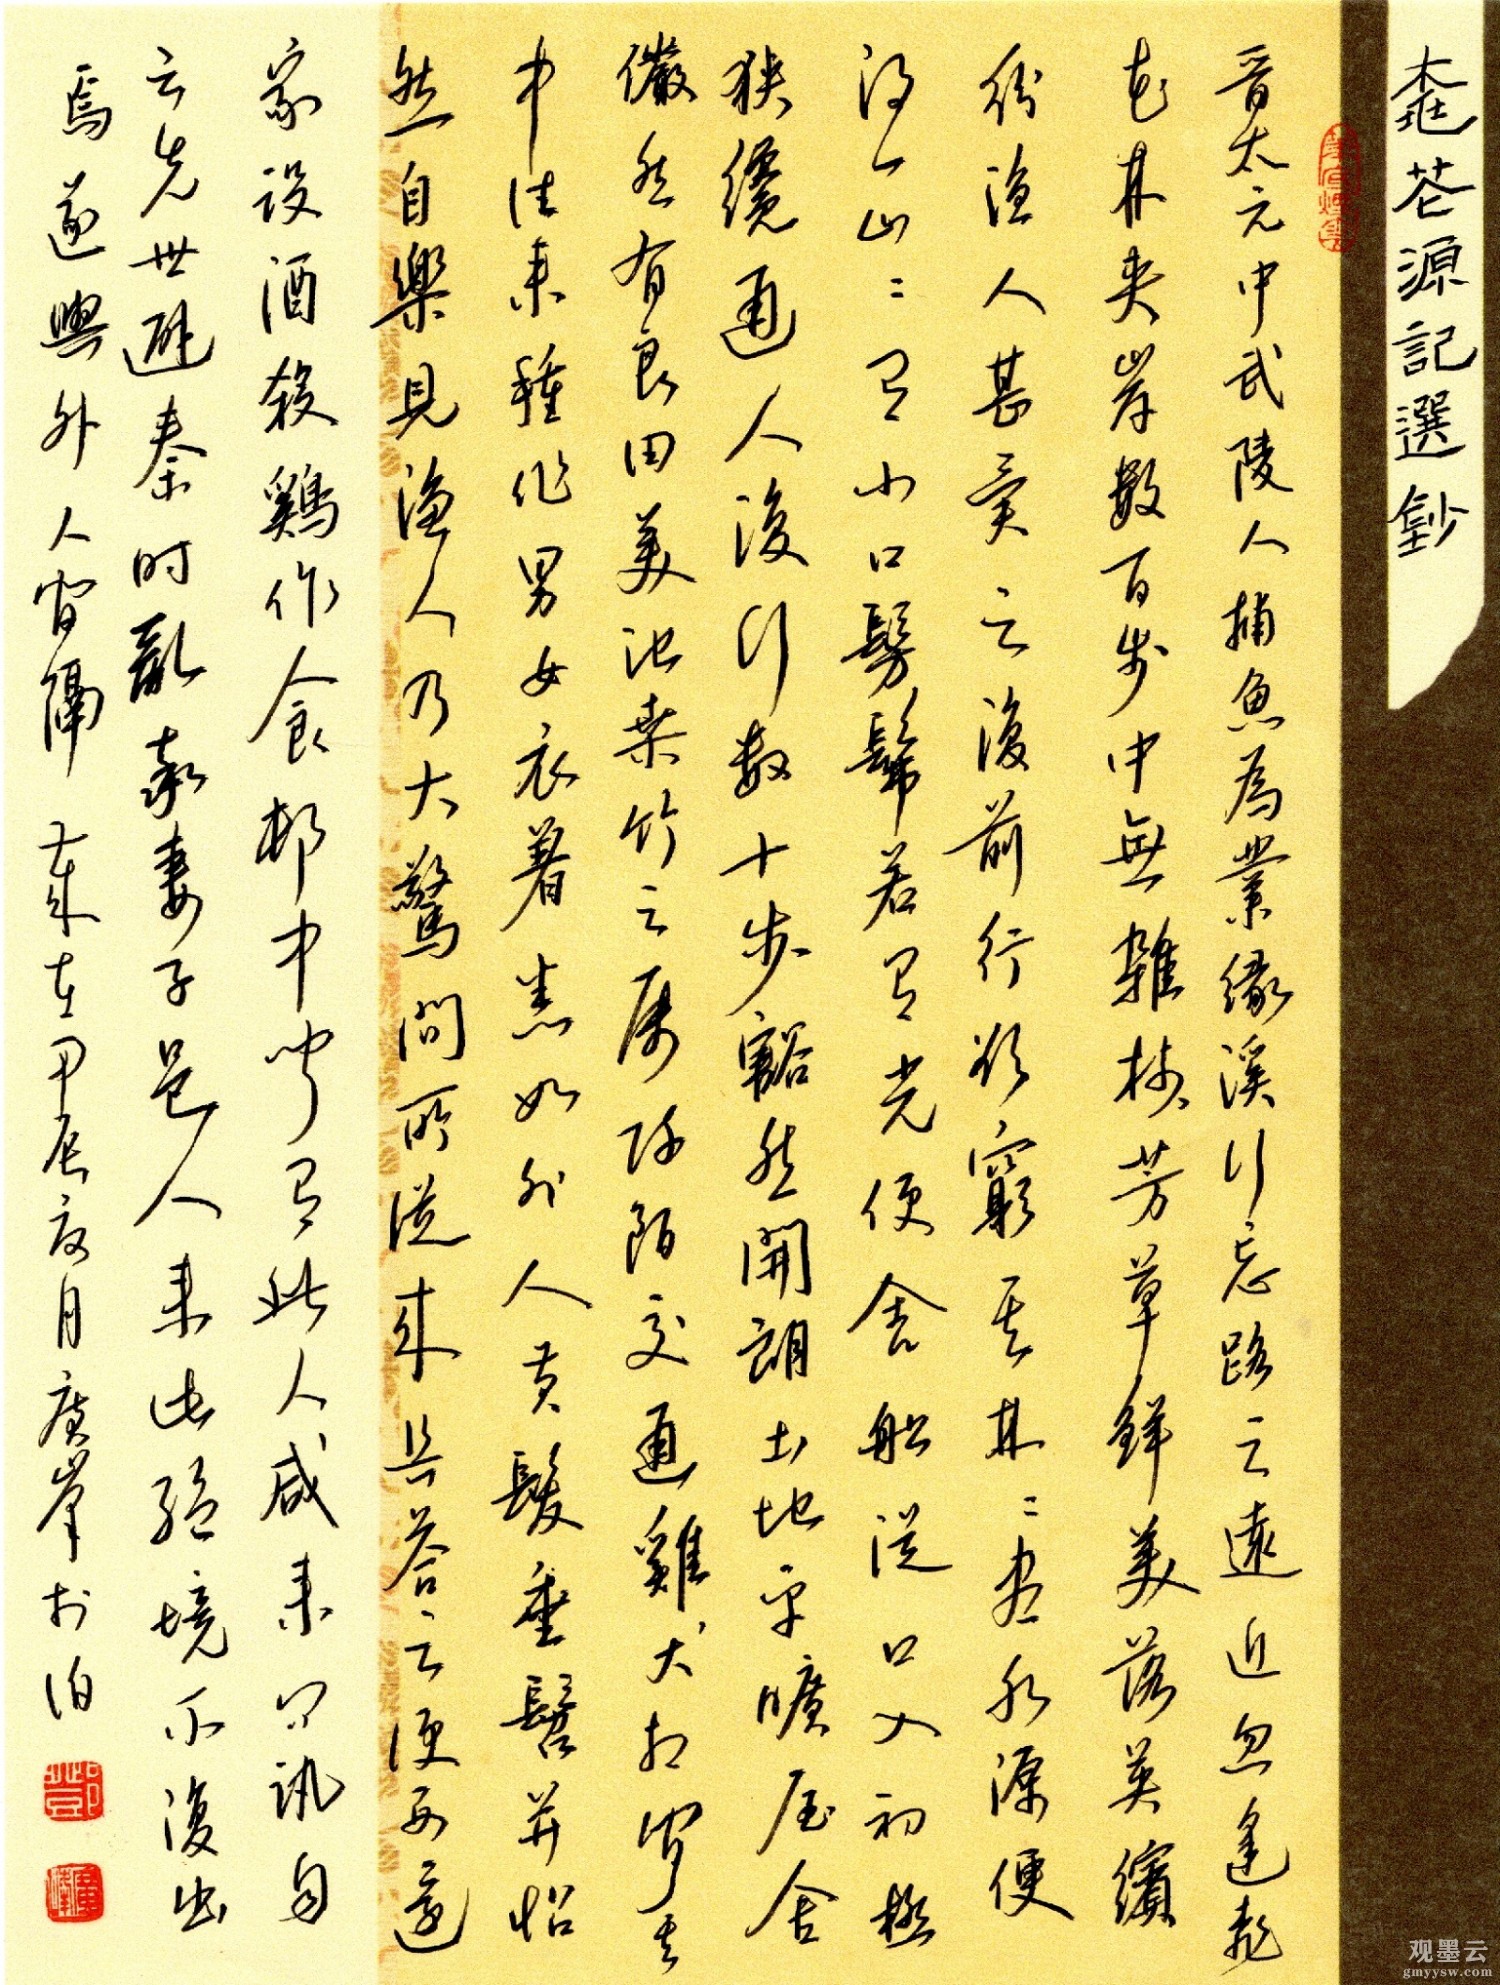 桃花源記選鈔
晋太元中武陵人捕魚為業緣溪行忘路之遠近忽逢桃
花林夹岸數百步中無雜樹芳草鮮美落英繽
紛漁人甚異之復前行欲窮其林〻盡水源便
得一山〻有小口髣髴若有光便舍船從口入初極
狹纔通人復行数十步豁然開朗土地平曠屋舍
儼然有良田美池桑竹之属阡陌交通雞犬相聞其
中往来種作男女衣着悉如外人黄髮垂髫并怡
然自樂見漁人乃大驚問所從来具答之便要還
家設酒殺鷄作食邨中聞有此人咸来問訊自
云先世避秦時亂率妻子邑人来此絕境不復出
焉遂與外人間隔 歲在甲辰夏月廣峯於泊
观墨云
gmyysw.com